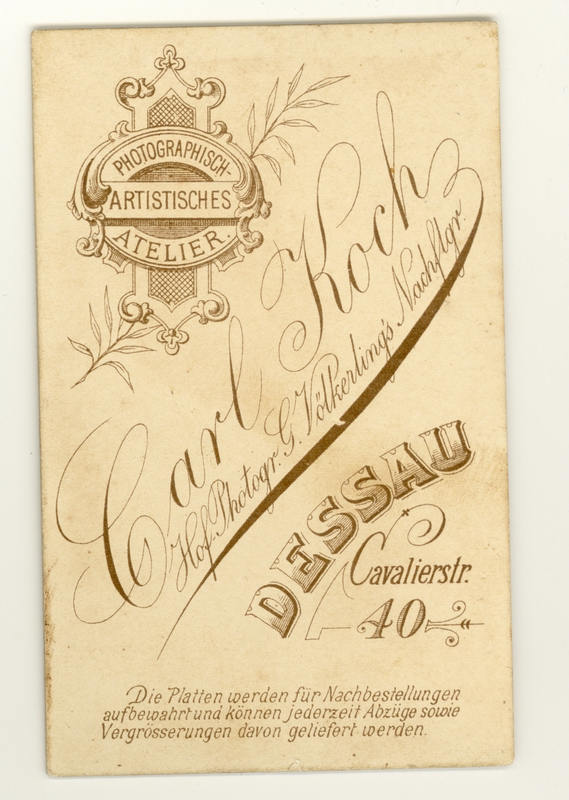 PHOTOGRAPHISCH-
ARTISTISCHES
ATELIER.
Carl Koch
Hof.Photogr. G. Völkerling's Nachflgr.
DESSAU
Cavalierstr.
40
Die Platten werden für Nachbestellungen
aufbewahrt und können jederzeit Abzüge sowie
Vergrösserungen davon geliefert werden.